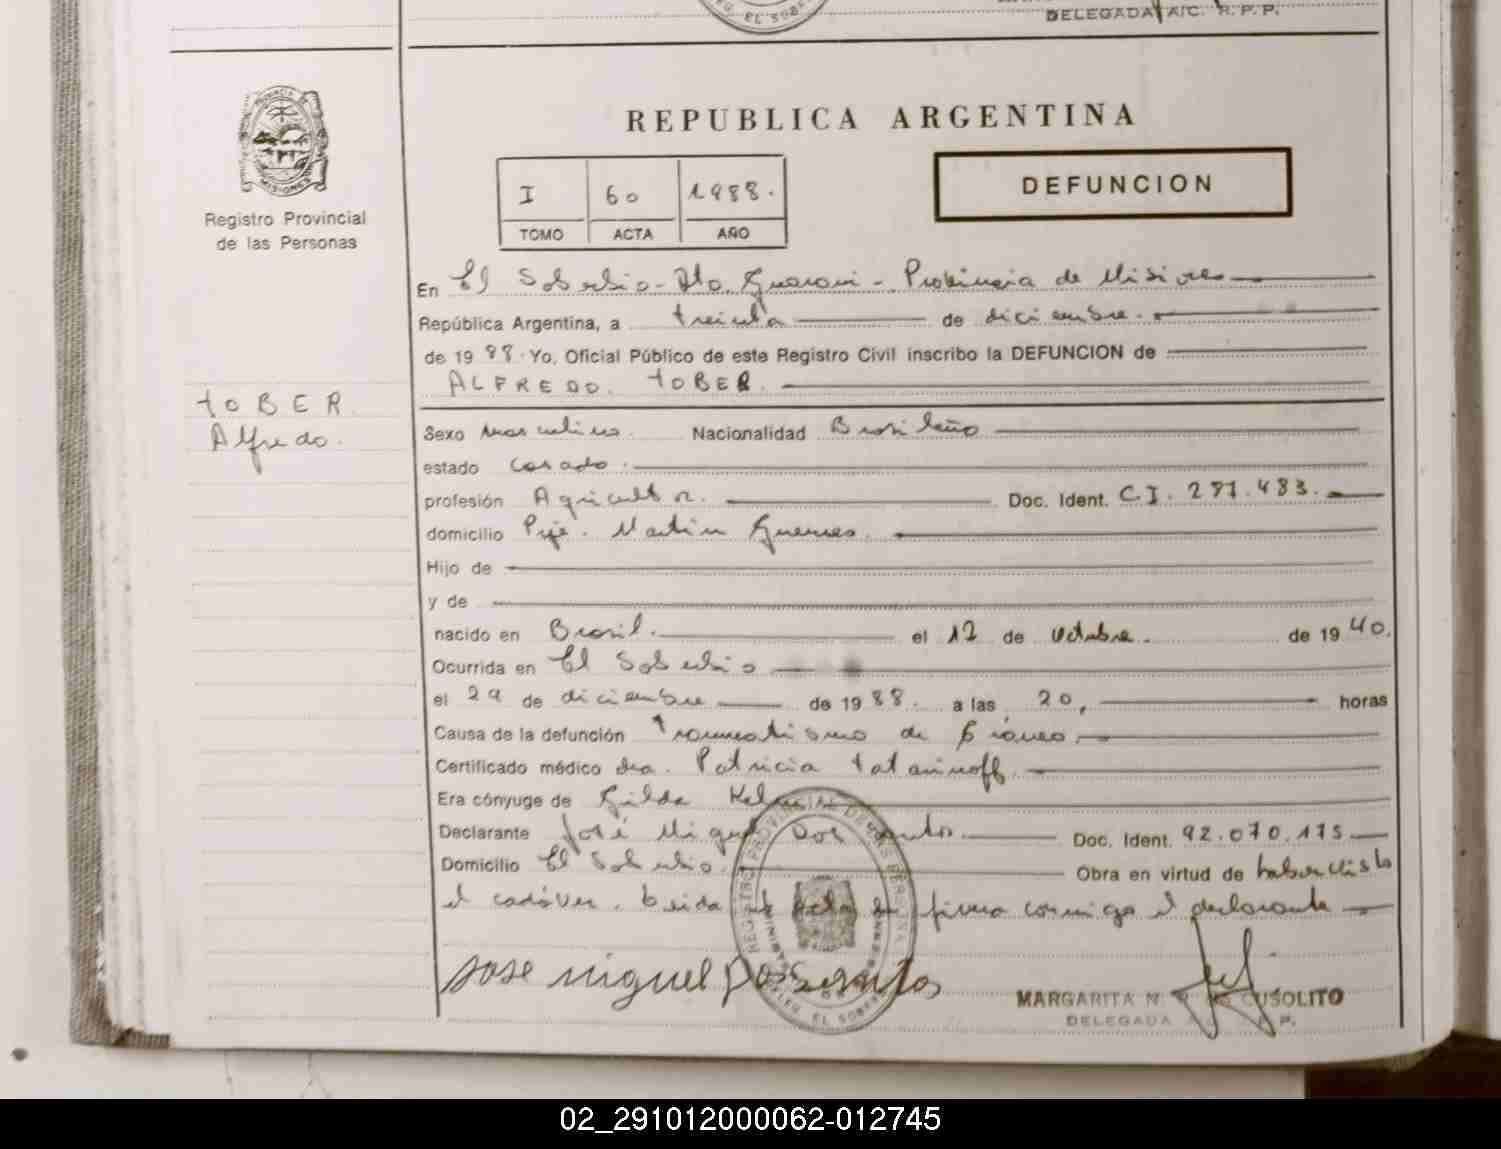 EL SOB
DELEGADA A/C. R. P. P.
REPUBLICA ARGENTINA
I 60 1988.
TOMO ACTA AÑO
DEFUNCION
PROVINCIA DE
MISIONES
Registro Provincial
de las Personas
En El Soberbio - Dto. Guarani - Provincia de Misiones
República Argentina, a treinta de diciembre.
de 19 88. Yo, Oficial Público de este Registro Civil inscribo la DEFUNCION de
ALFREDO. TOBER.
TOBER
Alfredo.
Sexo masculino. Nacionalidad Brasileño
estado casado.
profesión Agricultor. Doc. Ident. C.I. 281.483.
domicilio Pje. Martin Guemes.
Hijo de
y de
nacido en Brasil. el 12 de octubre. de 19 40.
Ocurrida en El Soberbio
el 29 de diciembre de 1988. a las 20, horas
Causa de la defunción traumatismo de craneo.
Certificado médico dra. Patricia Tatarinoff.
Era cónyuge de Gilda
Declarante José Miguel Dos Santos Doc. Ident. 92.070.175
Domicilio El Soberbio. Obra en virtud de haber visto
el cadáver. Leida el acta la firma conmigo el declarante
Jose miguel Dos Santos
MARGARITA N. CUSOLITO
DELEGADA P.
02_291012000062-012745